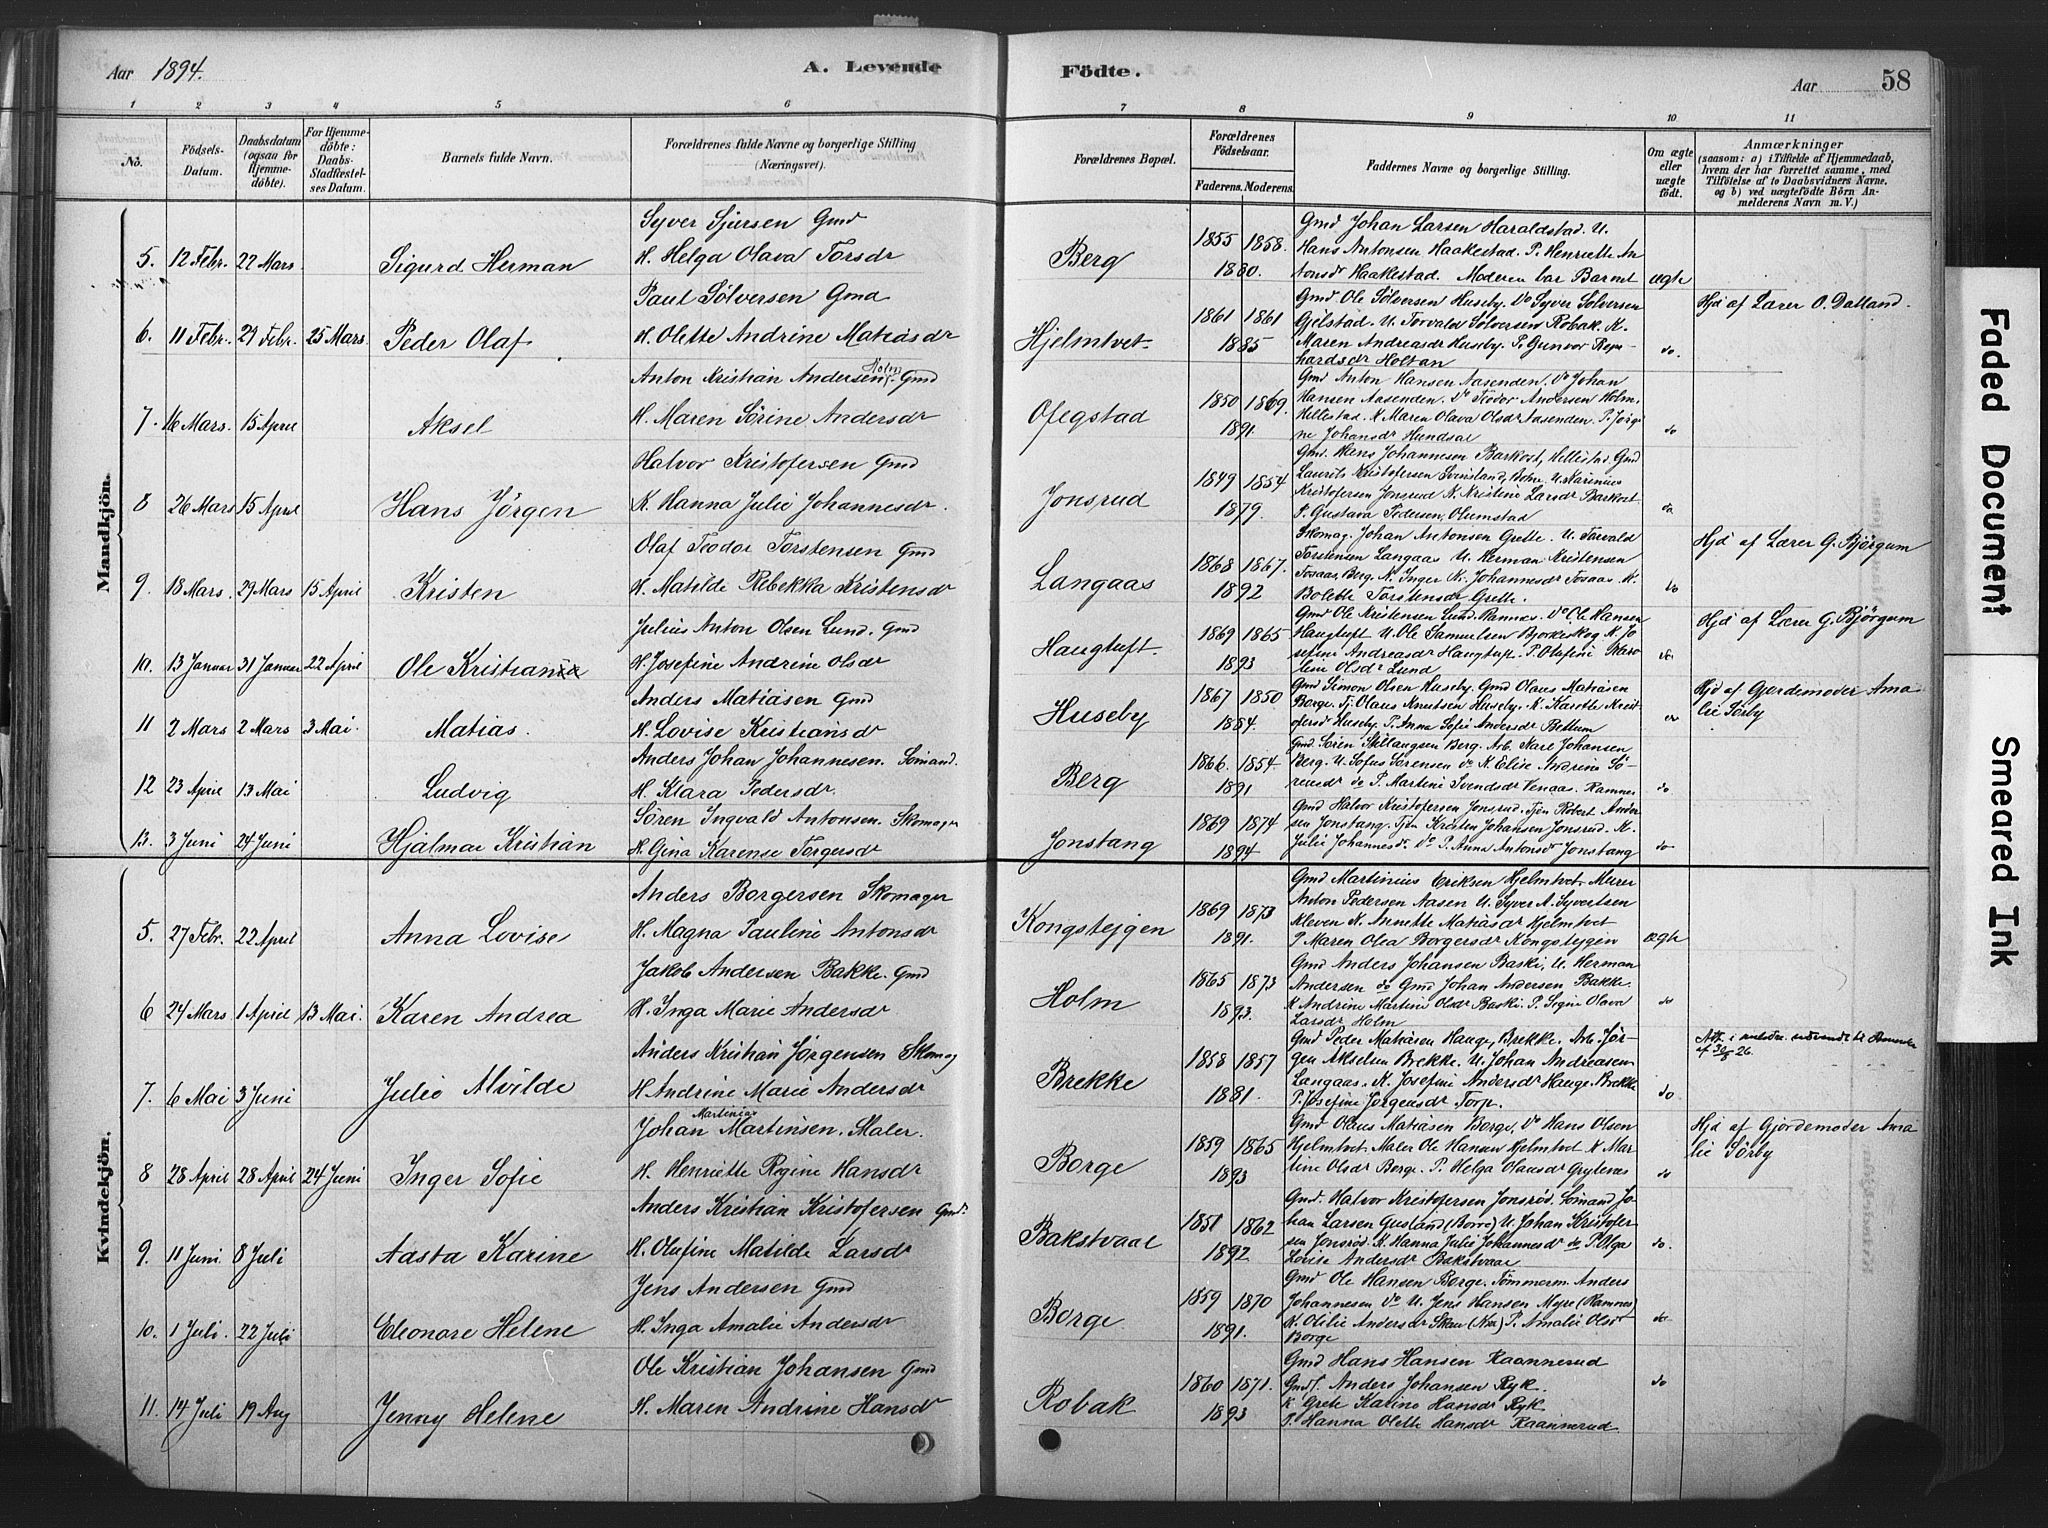 Aar 1894.
A. Levende
Födte.
Aar
58
1 2 3 4 5 6 7 8 9 10 11
No.
Födsels-
Datum.
Daabsdatum
(ogsaa for
Hjemme-
döbte).
For Hjemme-
döbte:
Daabs-
Stadfæstel-
ses Datum.
Barnets fulde Navn.
Forældrenes fulde Navne og borgerlige Stilling
(Næringsvei).
Forældrenes Bopæl.
Forældrenes
Födselsaar.
Faderens. Moderens.
Faddernes Navne og borgerlige Stilling.
Om ægte
eller
uægte
födt.
Anmærkninger
(saasom: a) i Tilfælde af Hjemmedaab,
hvem der har forrettet samme, med
Tilföielse af to Daabsvidners Navne.
og b) ved uægtefödte Börn An-
melderens Navn m. V.)
Mandkjön.
5. 12 Febr. 22 Mars Sigurd Herman
Syver Sjursen Gmd
H. Helga Olava Torsdr
Berg
1855 1858.
1880.
Gmd Johan Larsen Haraldstad. U.
Hans Antonsen Haakestad. P. Henriette An
tonsdr Haakestad. Moderen bar Barnet
ægte
6. 11 Febr. 29 Febr. 25 Mars Peder Olaf
Paul Sölversen Gmd
H. Olette Andrine Matiasdr
Hjelmtvet
1861 1861
1885
Gmd Ole Sölversen Huseby. Do Syver Sölversen
Gjelstad. U. Torvald Sölversen Robak. K.
Maren Andreasdr Huseby. P. Gunvor Rep-
hardsdr Holtan
do.
Hjd af Lærer O. Dalland.
7. 16 Mars. 15 April Aksel
Anton Kristian Andersen Holm. Gmd
H. Maren Sörine Andersdr
Ofegstad
1850 1869.
1891.
Gmd Anton Hansen Aasenden, Do Johan
Hansen Aasenden. Do Teodor Andersen Holm.
Hillestad. K Maren Olava Olsdr Aasenden. P. Jörgi
ne Johansdr Hundsal
do
8 26 Mars 15 April Hans Jörgen
Halvor Kristofersen Gmd
K. Hanna Julie Johannesdr.
Jonsrud
1849 1854
1879.
Gmd. Hans Johannesen Barkost, Hillestad Gmd
Laurits Kristofersen Svinsland, Botne. U. Marinius
Kristofersen Jonsrud K. Kristine Larsdr Barkost
P. Gustava Pedersen, Olumstad
do
9. 18 Mars. 29 Mars 15 April Kristen
Olaf Teodor Torstensen Gmd
H. Matilde Rebekka Kristensdr
Langaas
1868 1867.
1892
Skomag. Johan Antonsen Grette. U. Torvald
Torstensen Langaas U. Herman Kristensen
Tosaas, Berg. K. Inger K. Johannesdr Tosaas. K.
Bolette Torstensdr Grette.
do
Hjd af Lærer G. Bjørgum
10. 13 Januar 31 Januar 22 April Ole Kristian
Julius Anton Olsen Lund. Gmd
H. Josefine Andrine Olsdr
Haugtuft.
1869 1865
1893
Gmd Ole Kristensen Lund. Ramnes. Do Ole Hansen
Haugtuft U. Ole Samuelsen Bjorkeskog K. Jo
sefine Andreasdr Haugtuft. P. Olafine Karo
line Olsdr Lund
do
Hjd af Lærer G. Bjørgum
11 2 Mars 2 Mars 3 Mai. Matias.
Anders Matiasen Gmd
H. Lovise Kristiansdr
Huseby
1867 1850
1884.
Gmd Simon Olsen Huseby. Gmd Olaus Matiasen
Borge. Tj. Olaus Knutsen Huseby. K. Kasette Krist
ofersdr Huseby. P. Anna Sofie Andersdr Bettum
do
Hjd af Gjordemoder Ama
lie Sörby
12 23 April 13 Mai Ludvig
Anders Johan Johannesen. Sömand.
H. Klara Pedersdr.
Berg
1866. 1854.
1891
Gmd. Sören Skillaugsen Berg. Arb. Karl Johansen
Berg. U. Sofus Sörensen Do K. Elise Andrine Sö-
rensdr do P. Martine Svendsdr Venaas. Ramnes
do
13. 3 Juni 24 Juni Hjalmar Kristian
Sören Ingvald Antonsen. Skomager
H. Gina Karense Torgersdr
Jonstang
1869 1874
1894
Gmd Halvor Kristofersen Jonsrud. Tjen Robert Ander
sen Jonstang. Tjen Kristen Johansen Jonsrud. K.
Julie Johannesdr. Do P. Anna Antonsdr Jonstang
do
Kvindekjön.
5. 27 Febr. 22 April Anna Lovise
Anders Borgersen Skomager
H. Magna Pauline Antonsdr
Kongsteigen
1869 1873
1891.
Gmd Martinius Eriksen Hjelmtvet. Murer
Anton Pedersen Aasen U. Syver A. Syvertsen
Kleven K. Annette Matiasdr Hjelmtvet
P. Maren Olea Borgersdr Kongsteigen
ægte
6 24 Mars 1 April 13 Mai. Karen Andrea
Jakob Andersen Bakke. Gmd
H. Inga Marie Andersdr
Holm
1865 1873
1893.
Gmd Anders Johansen Baski, U. Herman
Andersen do Gmd Johan Andersen Bakke.
K Andrine Martine Olsdr Baski. P. Signe Olava
Larsdr Holm
do
7. 6 Mai 3 Juni Julie Alvilde
Anders Kristian Jørgensen Skomag
H Andrine Marie Andersdr
Brekke
1858 1857
1881.
Gmd Peder Matiasen Hauge, Brekke. Arb. Jör-
gen Akselsen Brekke. U. Johan Andreasen
Langaas. K. Josefine Andersdr Hauge. Brekke
P. Josefine Jörgensdr Torp.
do
8 28 April 28 April 24 Juni Inger Sofie
Johan Martinius Martinsen. Maler.
H. Henriette Regine Hansdr
Borge
1859 1865
1893
Gmd Olaus Matiasen Borge, Do Hans Olsen
Hjelmtvet Maler Ole Hansen Hjelmtvet K Mar
tine Olsdr Borge. P. Helga Olausdr Grytenes
do
Hjd af Gjordemoder Ama
lie Sörby
9. 11 Juni. 8 Juli Aasta Karine
Anders Kristian Kristofersen Gmd.
H. Olufine Matilde Larsdr
Bakstvaal
1851 1862
1892
Gmd. Halvor Kristofersen Jonsröd. Sömand Jo-
han Larsen Gusland (Borre) U. Johan Kristofer
sen Jonsröd. K. Hanna Julie Johannesdr do P. Olga
Lovise Andersdr Bakstvaal
do.
10. 1 Juli. 22 Juli Eleonore Helene
Jens Andersen Gmd
H. Inga Amalie Andersdr
Borge
1859 1870
1891.
Gmd Ole Hansen Borge. Tömmerm. Anders
Johannesen Do U. Jens Hansen Myre (Ramnes)
K. Otilie Andersdr Skau P. Amalie Olsdr
Borge
do
11. 14 Juli 19 Aug Jenny Helene
Ole Kristian Johansen Gmd
H. Maren Andrine Hansdr
Robak
1860 1871.
1893
Gmd Hans Hansen Raannerud
Gmd. Anders Johansen Ryk.
K Grete Karine Hansdr Ryk
P. Hanna Olette Hansdr Raannerud
do
Faded Document
Smeared Ink